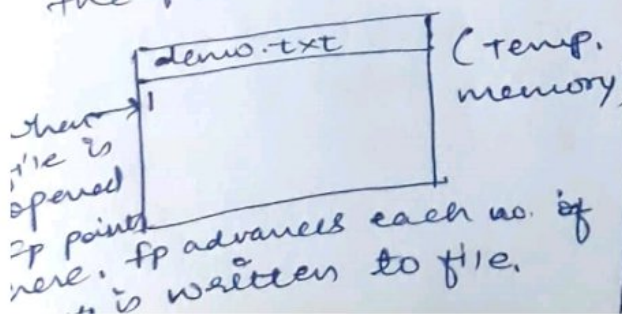 the
demo.txt
(Temp.
memory
when
file is
opened
fp points
here. fp advances each no. of
is written to file.